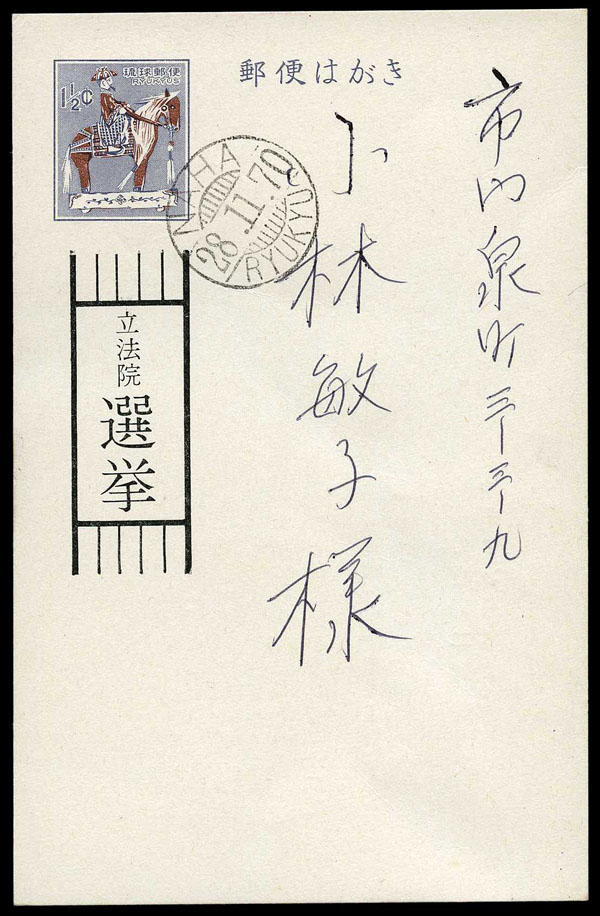 琉球郵便
RYUKYUS
1½¢
郵便はがき
NAHA
28.11.70
RYUKYU
立法院
選挙
市内泉町三ー三ー九
小林敏子様